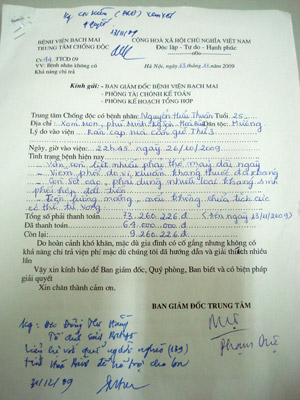 13/11/09
BỆNH VIỆN BẠCH MAI
TRUNG TÂM CHỐNG ĐỘC
CỘNG HOÀ XÃ HỘI CHỦ NGHĨA VIỆT NAM
Độc lập - Tự do - Hạnh phúc
CV: TTCĐ 09
VV: Bệnh nhân không có
Khả năng chi trả
Hà Nội, ngày 13 tháng 11 năm 2009
Kính gửi: - BAN GIÁM ĐỐC BỆNH VIỆN BẠCH MAI
- PHÒNG TÀI CHÍNH KẾ TOÁN
- PHÒNG KẾ HOẠCH TỔNG HỢP
Trung tâm Chống độc có bệnh nhân: Nguyễn Hữu Thuần Tuổi 25
Địa chỉ: Xóm Dân tộc: Mường
Lý do vào viện: Rắn cạp nia cắn giờ thứ 3
Ngày, giờ vào viện: 22h45 ngày 26/10/2009
Tình trạng bệnh nhân hiện nay
- Vẫn còn liệt nhiều phải thở máy dài ngày
- Viêm phổi do vi khuẩn kháng thuốc đa kháng
- Còn sốt cao, phải dùng nhiều loại kháng sinh
phối hợp đắt tiền
- Tiên lượng nặng, nếu không chữa tích cực
có thể tử vong
Tổng số phải thanh toán 73.260.226 đ (đến ngày 13/11/2009)
Đã thanh toán 64.000.000 đ
Còn lại: 9.260.226 đ
Do hoàn cảnh khó khăn, mặc dù gia đình có cố gắng nhưng không có
khả năng chi trả viện phí mặc dù chúng tôi đã hướng dẫn và giải thích nhiều
lần
Vậy xin kính báo để Ban giám đốc, Quý phòng, Ban biết và có biện pháp
giải quyết
Xin chân thành cảm ơn.
BAN GIÁM ĐỐC TRUNG TÂM
Kg:
liên hệ với quỹ người nghèo